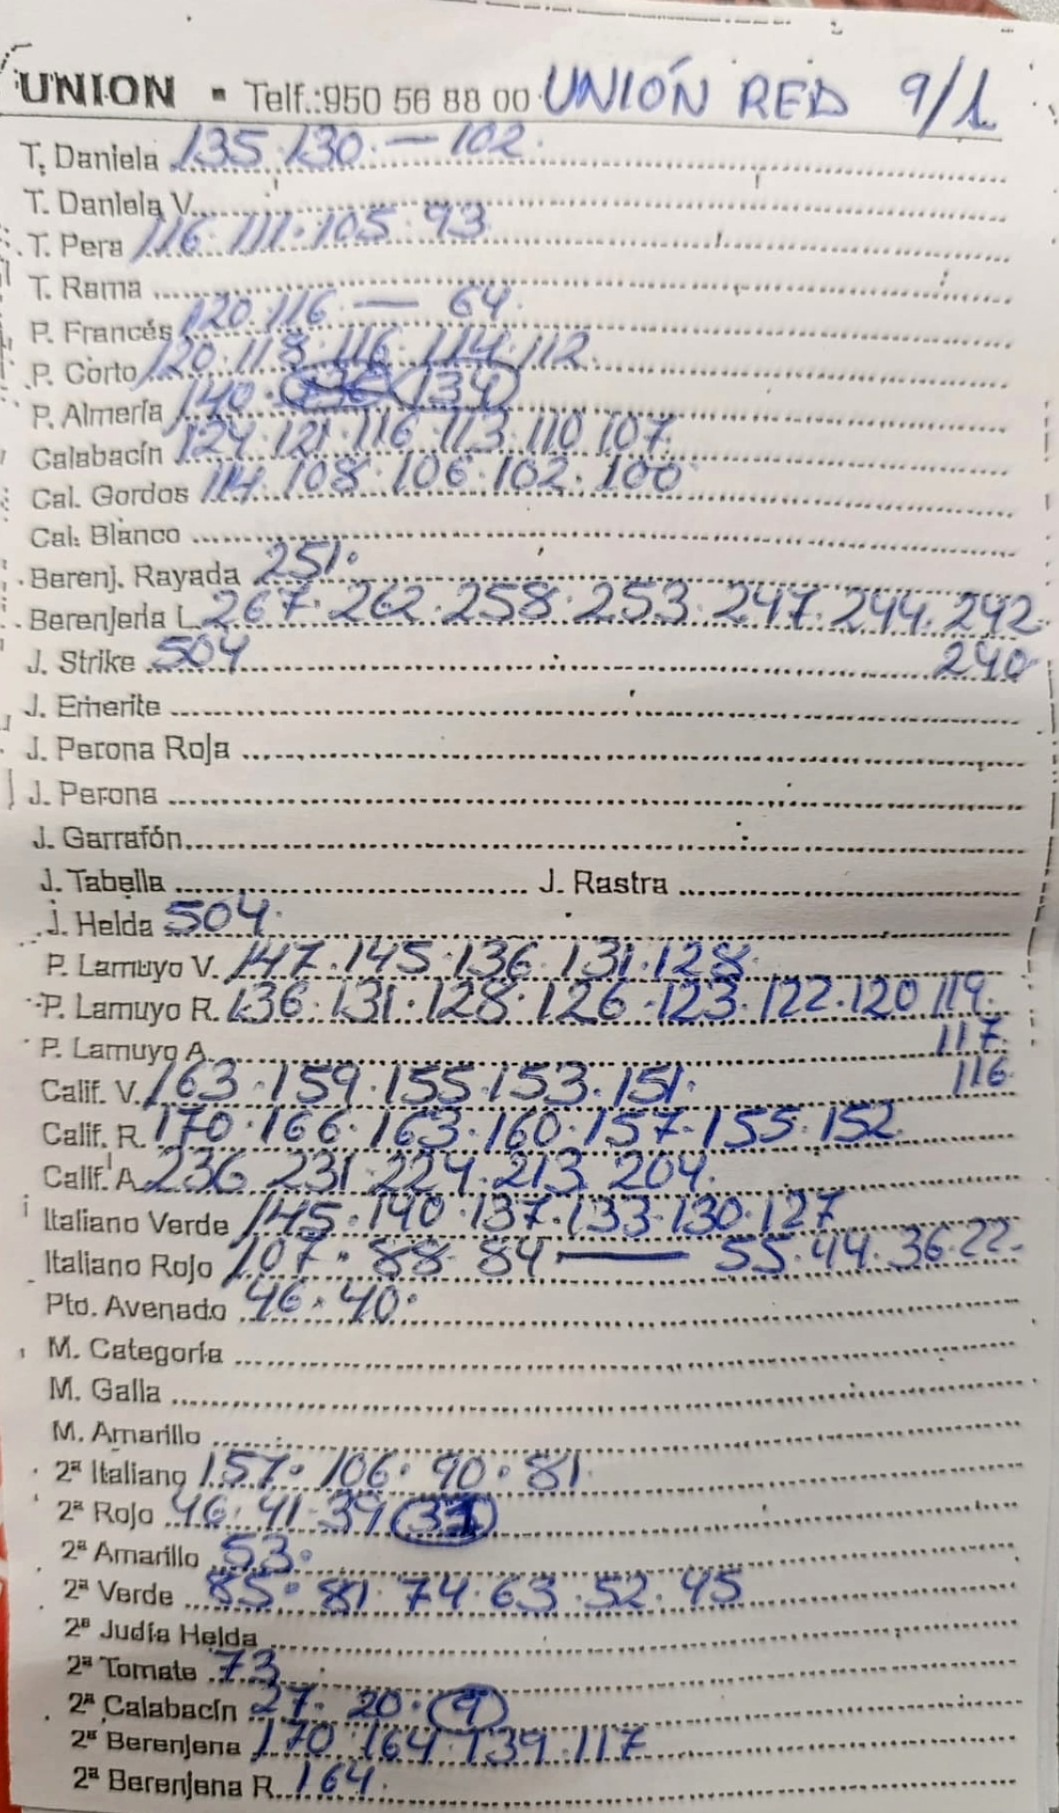 UNION - Telf.:950 56 88 00 UNIÓN RED 9/1
T. Daniela 135 130 — 102
T. Daniela V.
T. Pera 116 111 105 93
T. Rama
P. Francés 120 116 — 64
P. Corto 120 118 116 114 112
P. Almería 140 134
Calabacín 124 121 116 113 110 107
Cal. Gordos 114 108 106 102 100
Cal. Blanco
Berenj. Rayada 251
Berenjena L 267 262 258 253 247 244 242
J. Strike 504 240
J. Emerite
J. Perona Roja
J. Perona
J. Garrafón
J. Tabella J. Rastra
J. Helda 504
P. Lamuyo V. 147 145 136 131 128
P. Lamuyo R. 136 131 128 126 123 122 120 119
P. Lamuyo A. 117
Calif. V. 163 159 155 153 151 116
Calif. R. 170 166 163 160 157 155 152
Calif. A 236 231 224 213 204
Italiano Verde 145 140 137 133 130 127
Italiano Rojo 107 88 84 — 55 44 36 22
Pto. Avenado 46 40
M. Categoría
M. Galla
M. Amarillo
2ª Italiano 157 106 90 81
2ª Rojo 46 41 39
2ª Amarillo 53
2ª Verde 85 81 74 63 52 45
2ª Judía Helda
2ª Tomate 73
2ª Calabacín 27 20 9
2ª Berenjena 170 164 139 117
2ª Berenjena R. 164